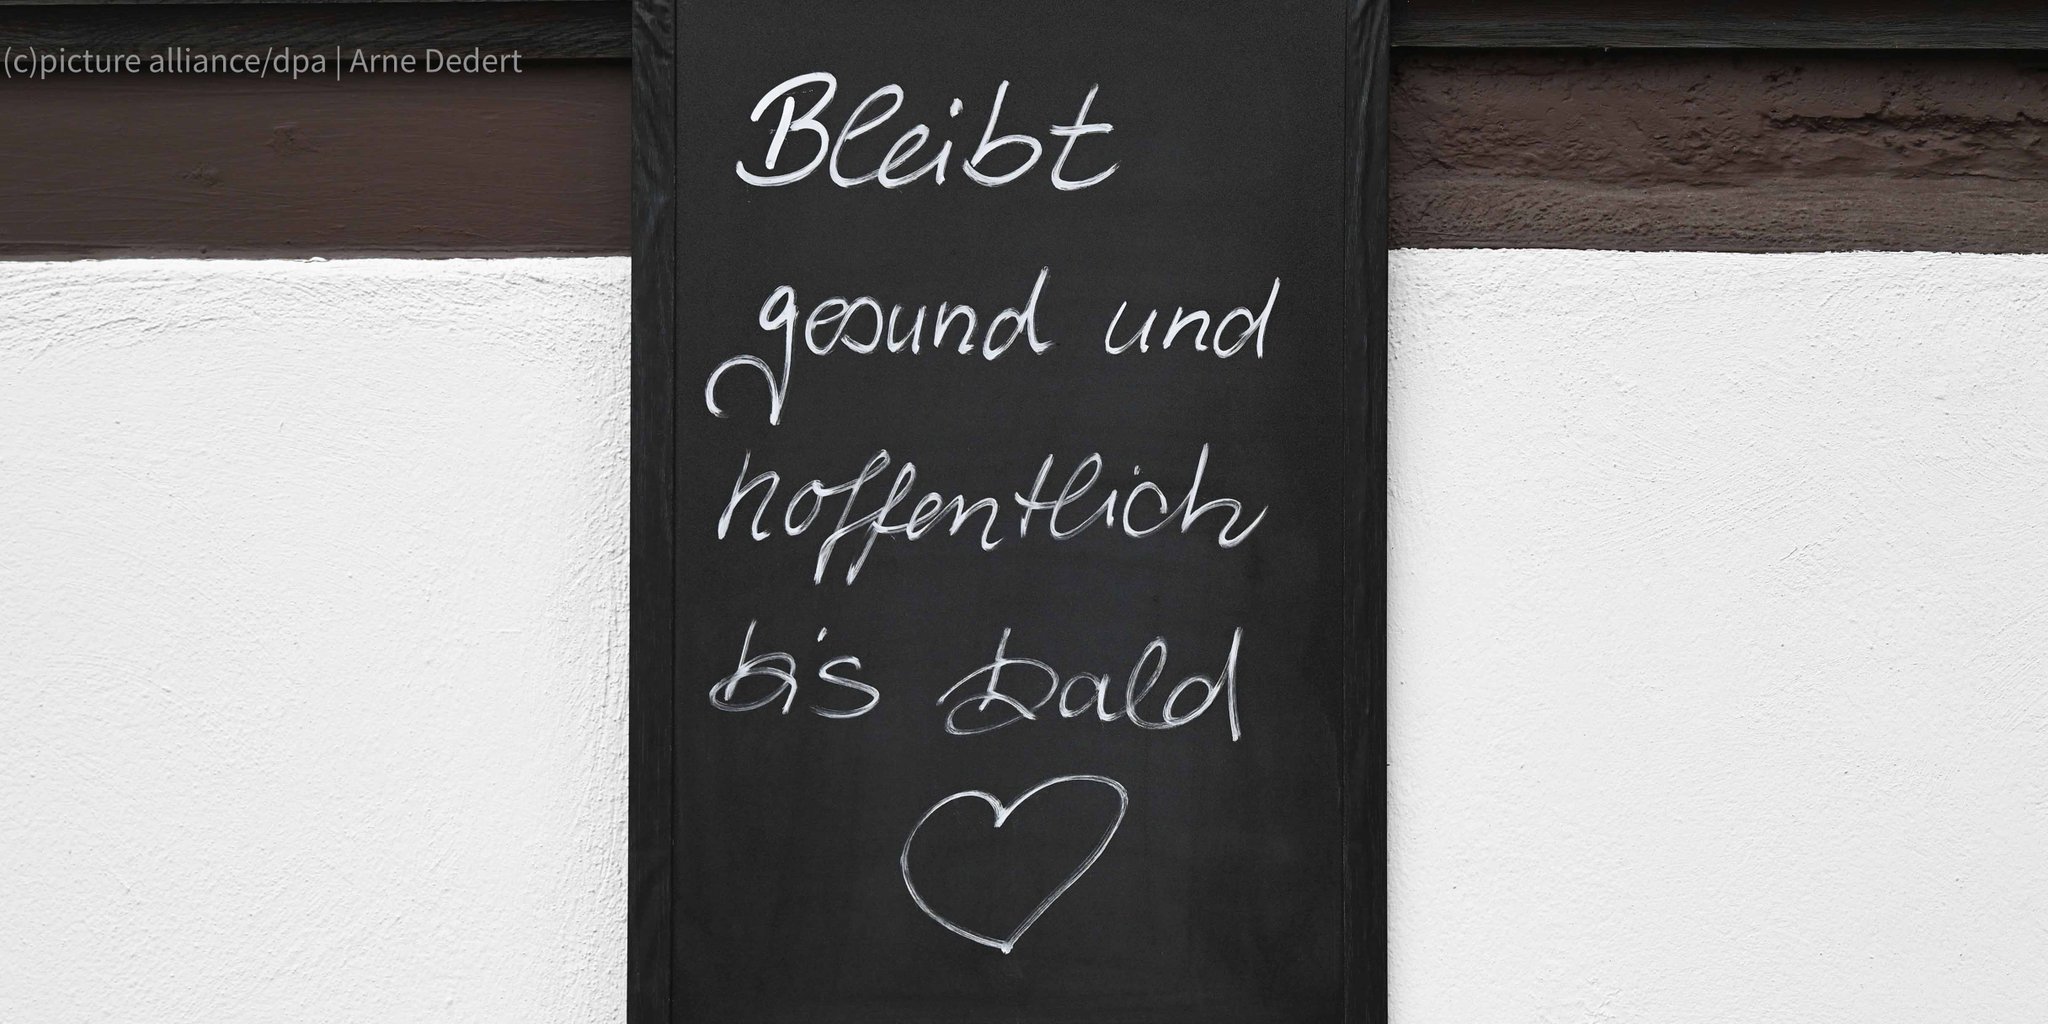 (c)picture alliance/dpa | Arne Dedert
Bleibt
gesund und
hoffentlich
bis bald